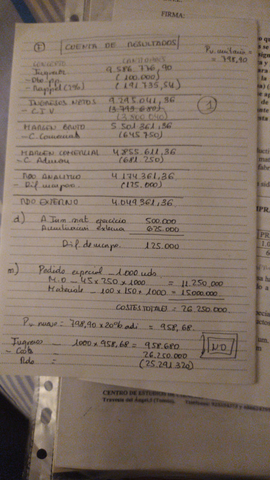 FIRMA:
② CUENTA DE RESULTADOS
Pv unitario =
= 798,90
CONCEPTOS CANTIDADES
Ingresos 9.586.776,90
- Dto pp. (100.000)
- Rappel (2%) (191.735,54)
INGRESOS NETOS 9.295.041,36
- C.I.V
(3.793.680)
①
MARGEN BRUTO 5.501.361,36
- C. Comercial (645.750)
MARGEN COMERCIAL 4.855.611,36
- C Admon (681.250)
RDO ANALITICO 4.174.361,36
- Dif. incorpo (125.000)
RDO EXTERNO 4.049.361,36
d) A Tiem mat. ejercicio 500.000
Amortización externa 625.000
Dif. de incorp. 125.000
m) Pedido especial 1.000 uds.
M.O - 45 x 250 x 1000 = 11.250.000
Materiales - 100 x 150 x 1000 = 15000.000
COSTES TOTALES = 26.250.000
Pv nuevo = 798,90 x 20% adi = 958,68
Ingresos - 1000 x 958,68 = 958.680
- Costes 26.250.000
Rdo = (25.291.320)
NO
CENTRO DE ESTUDIOS